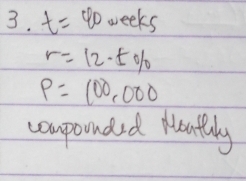 3. t = 90 weeks
r = 12.5%
P = 100,000
compounded Monthly